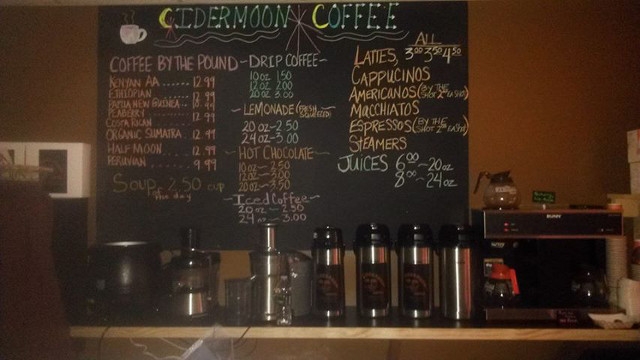 CIDERMOON COFFEE
COFFEE BY THE POUND
KENYAN AA ...... 12.99
ETHIOPIAN
PAPUA NEW GUINEA
PEABERRY 12.99
COSTA RICAN
ORGANIC SUMATRA .. 12.99
HALF MOON .... 12.99
PERUVIAN ..... 9.99
SOUP of the day 2.50 CUP
-DRIP COFFEE-
10oz 1.50
12oz 2.00
20oz 3.00
LEMONADE (FRESH SQUEEZED)
20oz-2.50
24oz-3.00
HOT CHOCOLATE
10oz - 2.50
12oz - 3.00
20oz - 3.50
Iced Coffee
20oz - 2.50
24oz - 3.00
ALL
LATTES, 3.00 3.50 4.50
CAPPUCINOS
AMERICANOS (BY THE SHOT
MACCHIATOS
ESPRESSOS (BY THE SHOT
STEAMERS
JUICES 6.00-20oz
8.00-24oz
BUNN